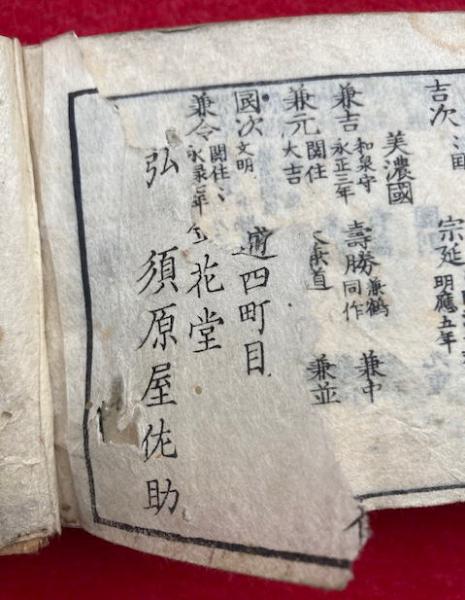 吉次
宗延 明應五年
美濃國
兼吉 和泉守 永正三年 壽勝 兼鶴同作 兼中
兼元 関住 大吉 道 兼並
國次 文明
兼令 関住 永禄 年
通四町目
金花堂
弘
須原屋佐助